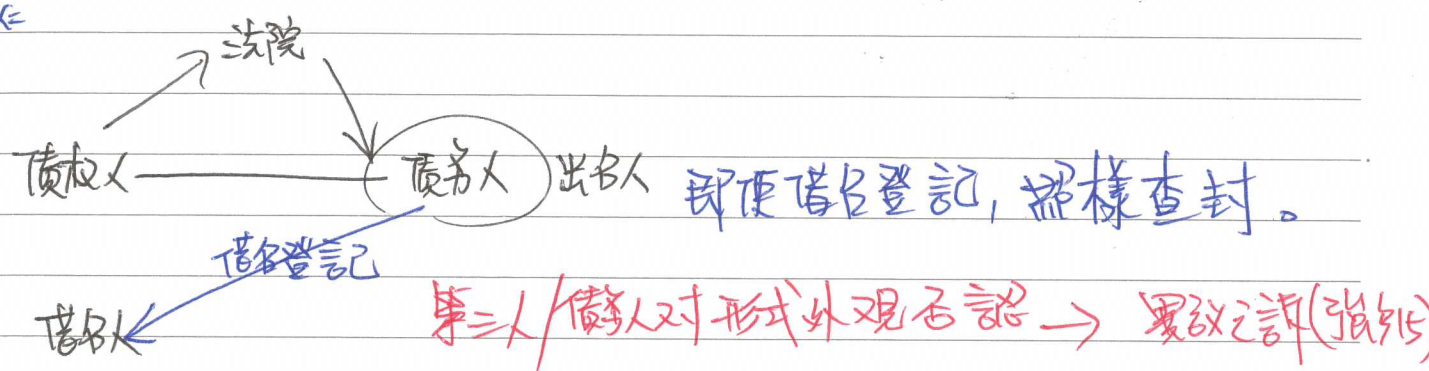 法院
債权人 債务人 出名人 即便借名登記，照樣查封。
借名登記
借名人 第三人/債务人对形式外观否認→異议之訴(強§15)